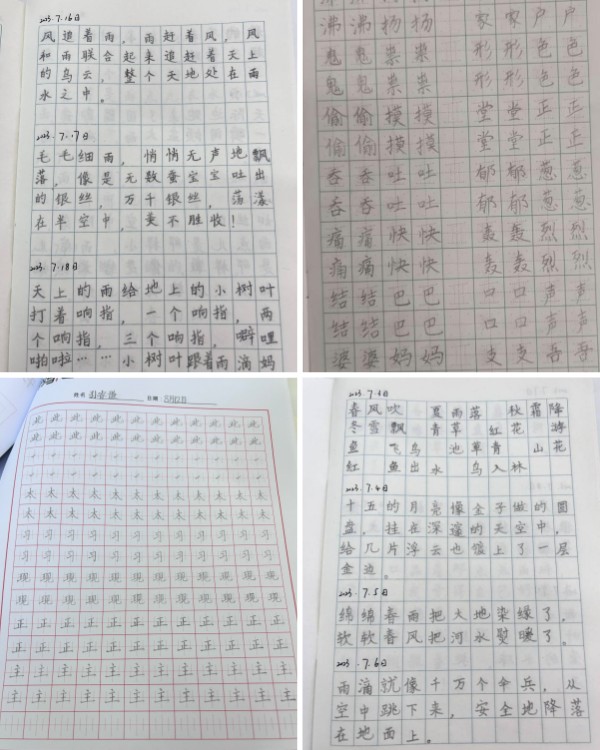 2023.7.16日
风追着雨，雨赶着风，风
和雨联合起来追赶着天上
的乌云，整个天地处在雨
水之中。
2023.7.17日
毛毛细雨，悄悄无声地飘
落，像是无数蚕宝宝吐出
的银丝，万千银丝，荡漾
在半空中，美不胜收！
2023.7.18日
天上的雨给地上的小树叶
打着响指，一个响指，两
个响指，三个响指，噼哩
啪啦……小树叶跟着雨滴妈
沸沸扬扬 家家户户
鬼鬼祟祟 形形色色
鬼鬼祟祟 形形色色
偷偷摸摸 堂堂正正
偷偷摸摸 堂堂正正
吞吞吐吐 郁郁葱葱
吞吞吐吐 郁郁葱葱
痛痛快快 轰轰烈烈
痛痛快快 轰轰烈烈
结结巴巴 口口声声
结结巴巴 口口声声
婆婆妈妈 支支吾吾
姓名 日期 5月12日
此此此此此此此此此此此
此此此此此此此此此此此
太太太太太太太太太太太
太太太太太太太太太太太
习习习习习习习习习习习
习习习习习习习习习习习
现现现现现现现现现现现
现现现现现现现现现现现
正正正正正正正正正正正
正正正正正正正正正正正
主主主主主主主主主主主
主主主主主主主主主主主
春风吹 夏雨落 秋霜降
冬雪飘 青草 红花 游
鱼 飞鸟 池草青 山花
红 鱼出水 鸟入林
2023.7.4日
十五的月亮像金子做的圆
盘，挂在深邃的天空中，
给几片浮云也镶上了一层
金边。
2023.7.5日
绵绵春雨把大地染绿了，
软软春风把河水熨暖了。
2023.7.6日
雨滴就像千万个伞兵，从
空中跳下来，安全地降落
在地面上。